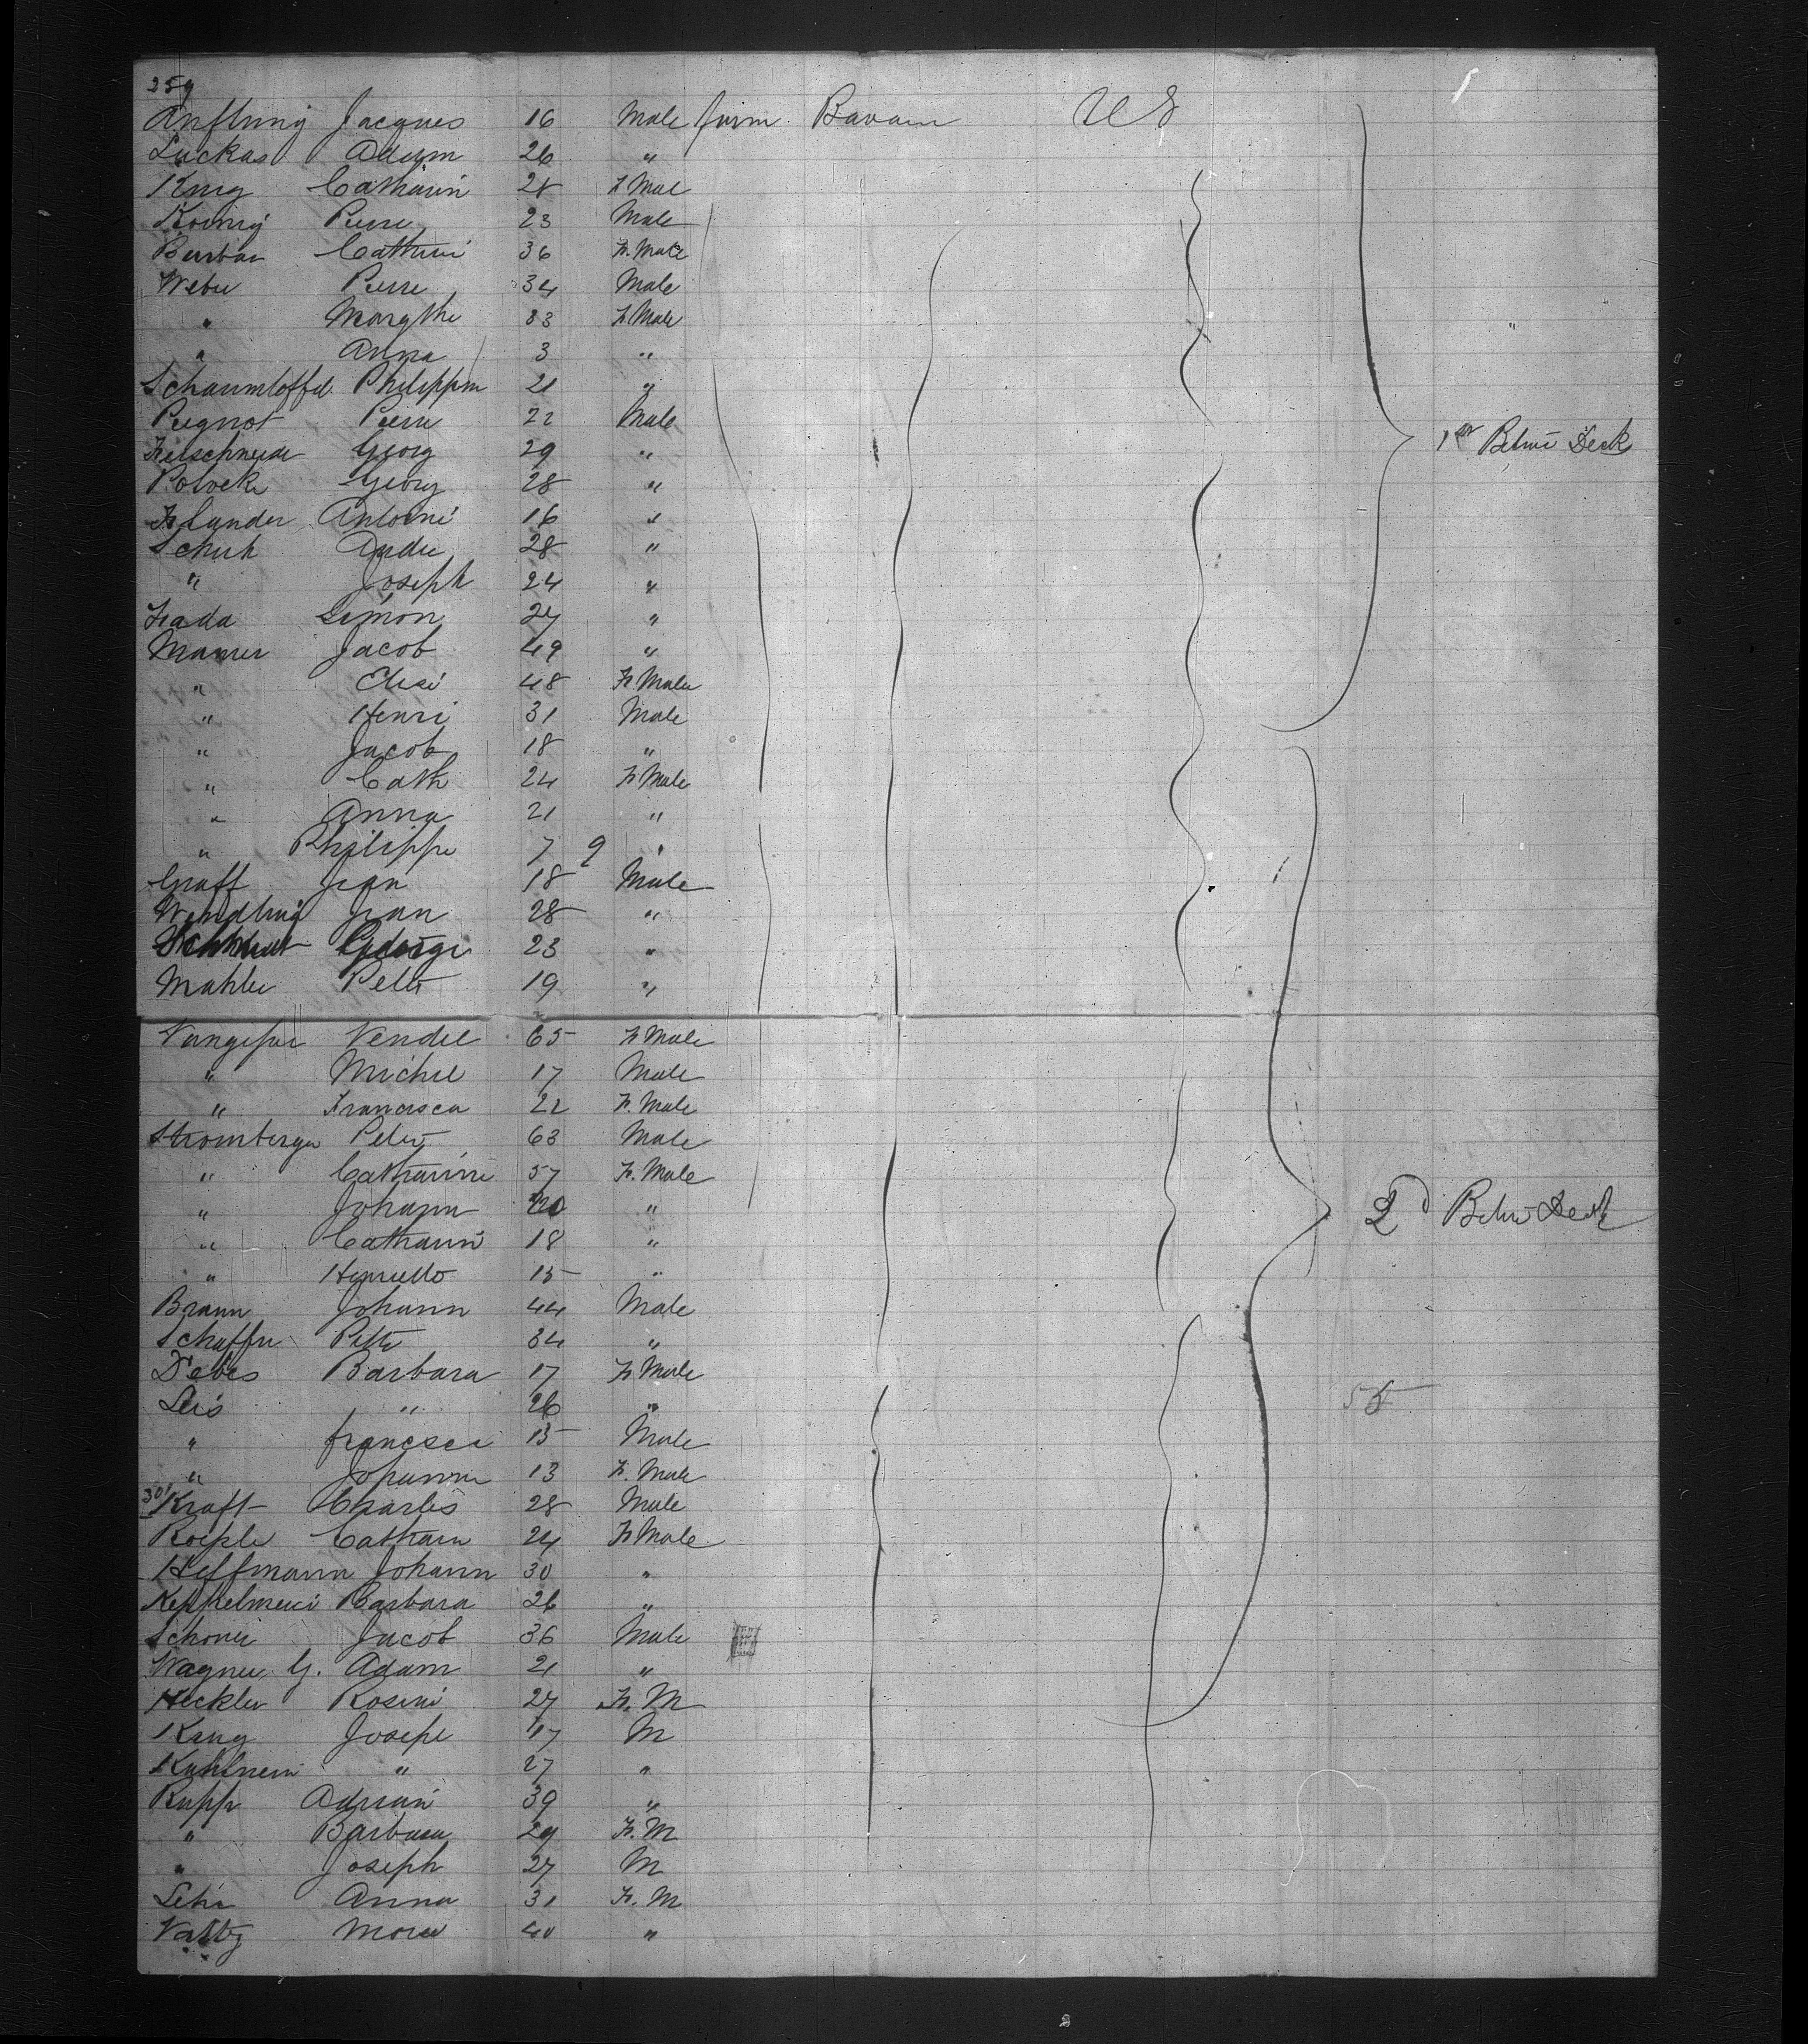 259
Anflung Jacques 16 Male farm. Bavaria US
Luckas Adam 26 "
Krug Catharin 28 F. Male
Koenig Pierre 23 Male
Burban Cathrin 36 F. Male
Weber Pierre 34 Male
" Margthe 33 F. Male
" Anna 3 "
Schaumloffel Philippin 21 "
Peignot Pierre 22 Male
Georg 29 " 1er Betwe Deck
Polock Georg 28 "
Antoine 16 "
Schuh Andre 28 "
" Joseph 24 "
Simon 27 "
Mamer Jacob 49 "
" Elise 48 F. Male
" Henri 31 Male
" Jacob 18 "
" Cath 24 F. Male
" Anna 21 "
" Philippe 7 9 "
Graff Jean 18 Male
Wendling Jean 28 "
Schmidt George 23 "
Mahler Peter 19 "
Vendel 65 F. Male
" Michel 17 Male
" Francisca 22 F. Male
Stromberger Peter 63 Male
" Catharine 57 F. Male
" Johann 20 " 2d Betwe Deck
" Catharin 18 "
" 15 "
Braun Johann 44 Male
Schaffer Peter 34 "
Debes Barbara 17 F. Male
Leis " 26 "
" francsca 15 Male
" Johanna 13 F. Male
301
Kraft Charles 28 Male
Catharin 24 F. Male
Heffmann Johann 30 "
Barbara 26 "
Schoner Jacob 36 Male
Wagner G. Adam 21 "
Heckler Rosine 27 F. M
Krug Josepe 17 M
27 "
Rupp Adrian 39 "
" Barbara 29 F. M
" Joseph 27 M
Anna 31 F. M
40 "